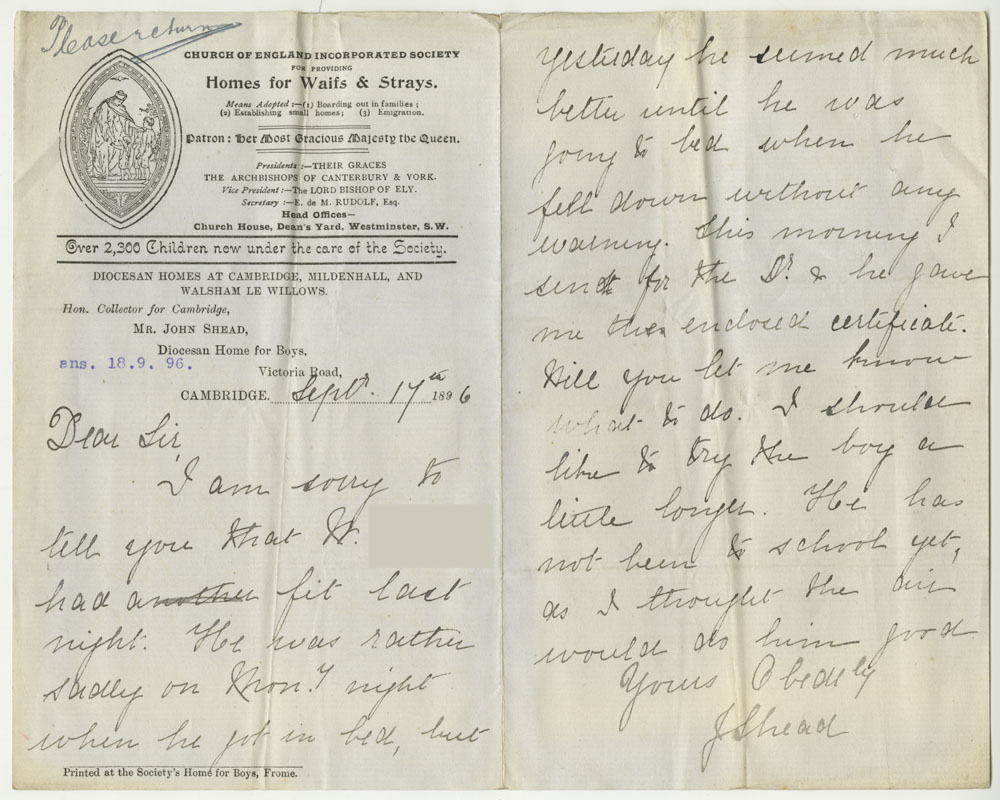 Please return
CHURCH OF ENGLAND INCORPORATED SOCIETY
FOR PROVIDING
Homes for Waifs & Strays.
Means Adopted :—(1) Boarding out in families ;
(2) Establishing small homes ; (3) Emigration.
Patron : Her Most Gracious Majesty the Queen.
Presidents :—THEIR GRACES
THE ARCHBISHOPS OF CANTERBURY & YORK.
Vice President :—The LORD BISHOP OF ELY.
Secretary :—E. de M. RUDOLF, Esq.
Head Offices—
Church House, Dean's Yard, Westminster, S.W.
Over 2,300 Children now under the care of the Society.
DIOCESAN HOMES AT CAMBRIDGE, MILDENHALL, AND
WALSHAM LE WILLOWS.
Hon. Collector for Cambridge,
MR. JOHN SHEAD,
Diocesan Home for Boys,
ans. 18.9. 96.
Victoria Road,
CAMBRIDGE. Septr. 17th 1896
Dear Sir,
I am sorry to
tell you that W.
had another fit last
night. He was rather
sadly on Mon.y night
when he got in bed, but
Printed at the Society's Home for Boys, Frome.
yesterday he seemed much
better until he was
going to bed when he
fell down without any
warning. This morning I
sent for the Dr. & he gave
me the enclosed certificate.
Will you let me know
what to do. I should
like to try the boy a
little longer. He has
not been to school yet,
as I thought the air
would do him good
Yours Obedtly
J Shead